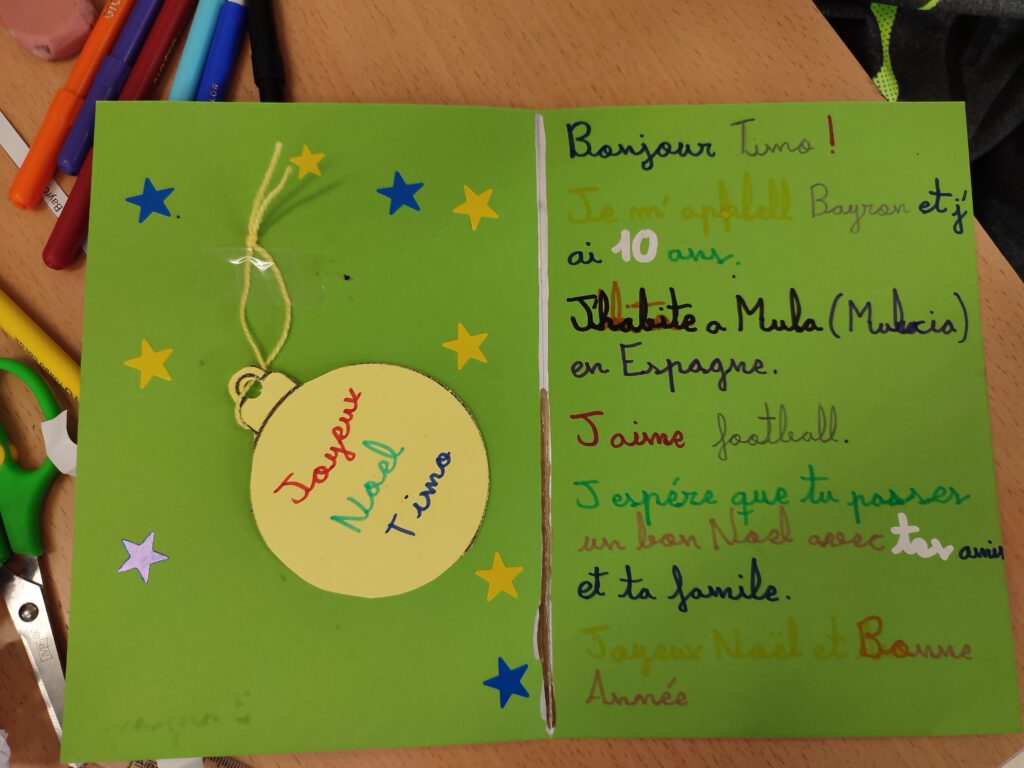 Joyeux
Noel
Timo
Bonjour Timo !
Je m'appell Bayron et j'
ai 10 ans.
J'habite a Mula (Murcia)
en Espagne.
J'aime football.
J'espére que tu passes
un bon Noel avec tes amis
et ta famile.
Joyeux Noël et Bonne
Année